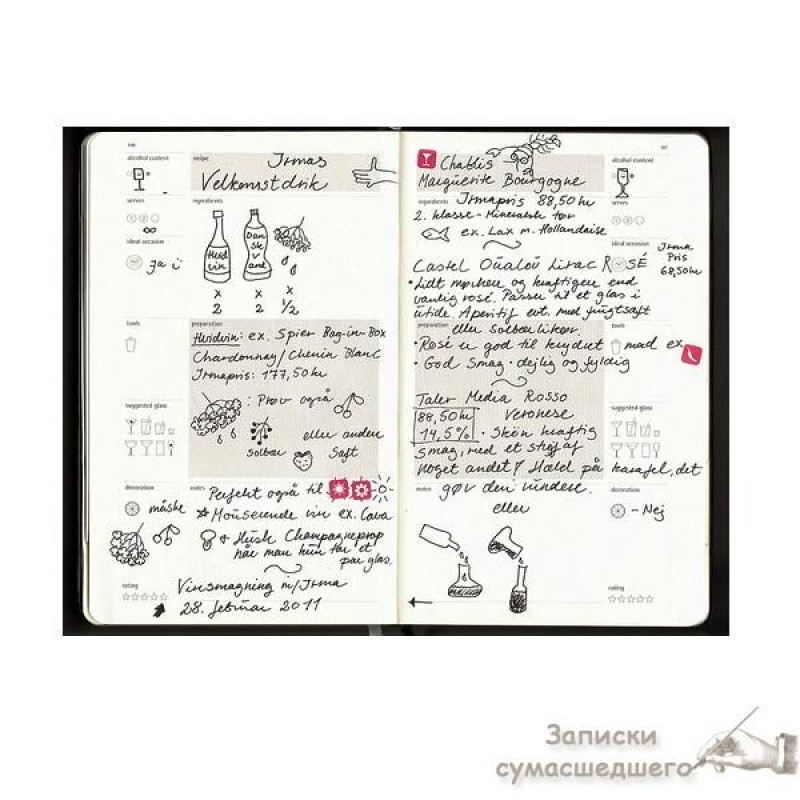 alcohol content
recipe
Irmas
Velkomstdrik
serves
ingredients
Hvid
vin
Dan
ske
vand
x x x
2 2 1/2
ideal occasion
Ja
tools
preparation
Hvidvin: ex. Spier Bag-in-Box
Chardonnay/Chenin Blanc
Irmapris: 177,50 kr
: Prøv også
solbær
eller anden
saft
suggested glass
decoration
måske
notes
Perfekt også til
Mousserende vin ex. Cava
+ Husk Champagneprop
når man kun tar et
par glas.
rating
Vinsmagning m/Irma
28. februar 2011
Chablis
Marguerite Bourgogne
alcohol content
ingredients
Irmapris 88,50 kr
2. klasse - Mineralsk tør
ex. Lax m. Hollandaise
serves
ideal occasion
Irma
Pris
68,50 kr
Castel Oualou Lirac ROSÉ
• Lidt mørkere og kraftigere end
vanlig rosé. Passer til et glas i
utide. Aperitif evt. med
eller solbærlikør.
preparation
tools
• Rosé er god til krydret mad ex
• God Smag - dejlig og fyldig
Taler Media Rosso
Veronese
88,50 kr
14,5%
• Skøn kraftig
smag, med et strejf af
noget andet! Hæld på karafel, det
gør den vundere.
eller
suggested glass
notes
decoration
- Nej
rating
Записки
сумасшедшего